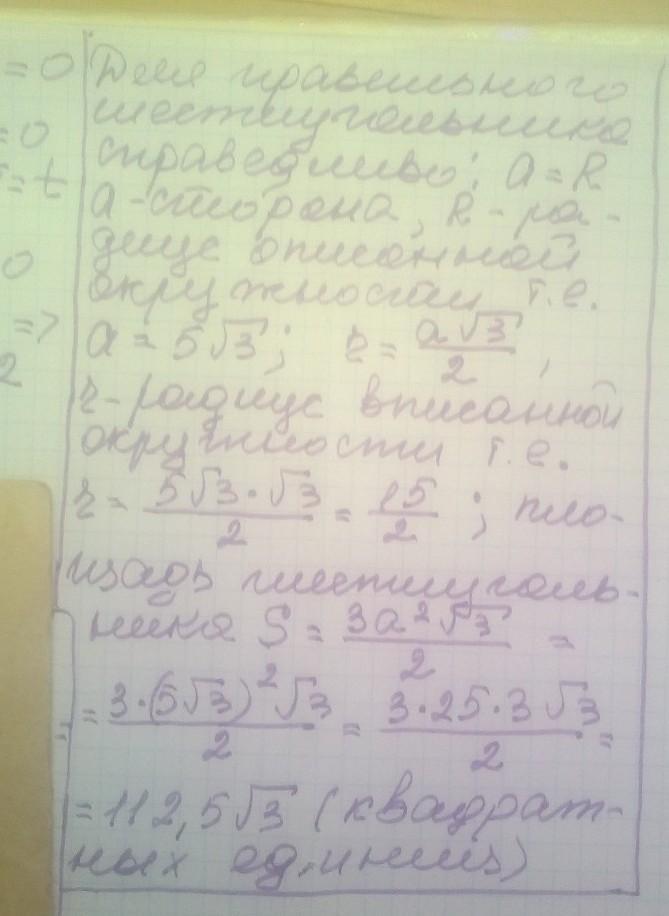 = 0 Для правильного
= 0 шестиугольника
= t справедливо: a = R
a - сторона, R - ра-
0 диус описанной
окружности т.е.
=> a = 5√3; r = a√3/2,
2 r - радиус вписанной
окружности т.е.
r = 5√3·√3/2 = 15/2; пло-
щадь шестиуголь-
ника S = 3a²√3/2 =
= 3·(5√3)²√3/2 = 3·25·3√3/2 =
= 112,5√3 (квадрат-
ных единиц)